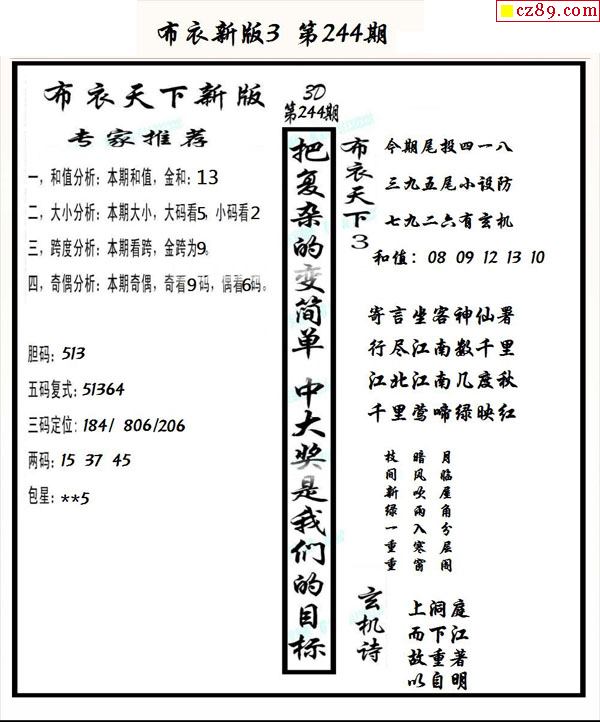 cz89.com
布衣新版3 第244期
布衣天下新版
专家推荐
一，和值分析：本期和值，金和：13
二，大小分析：本期大小，大码看5，小码看2
三，跨度分析：本期看跨，金跨为9。
四，奇偶分析：本期奇偶，奇看9码，偶看6码。
胆码：513
五码复式：51364
三码定位：184/ 806/206
两码：15 37 45
包星：**5
3D
第244期
把复杂的变简单 中大奖是我们的目标
布衣天下3
今期尾投四一八
三九五尾小设防
七九二六有玄机
和值：08 09 12 13 10
寄言坐客神仙署
行尽江南数千里
江北江南几度秋
千里莺啼绿映红
月临屋角分层阁
暗风吹雨入寒窗
枝间新绿一重重
玄机诗
上洞庭
而下江
故重著
以自明